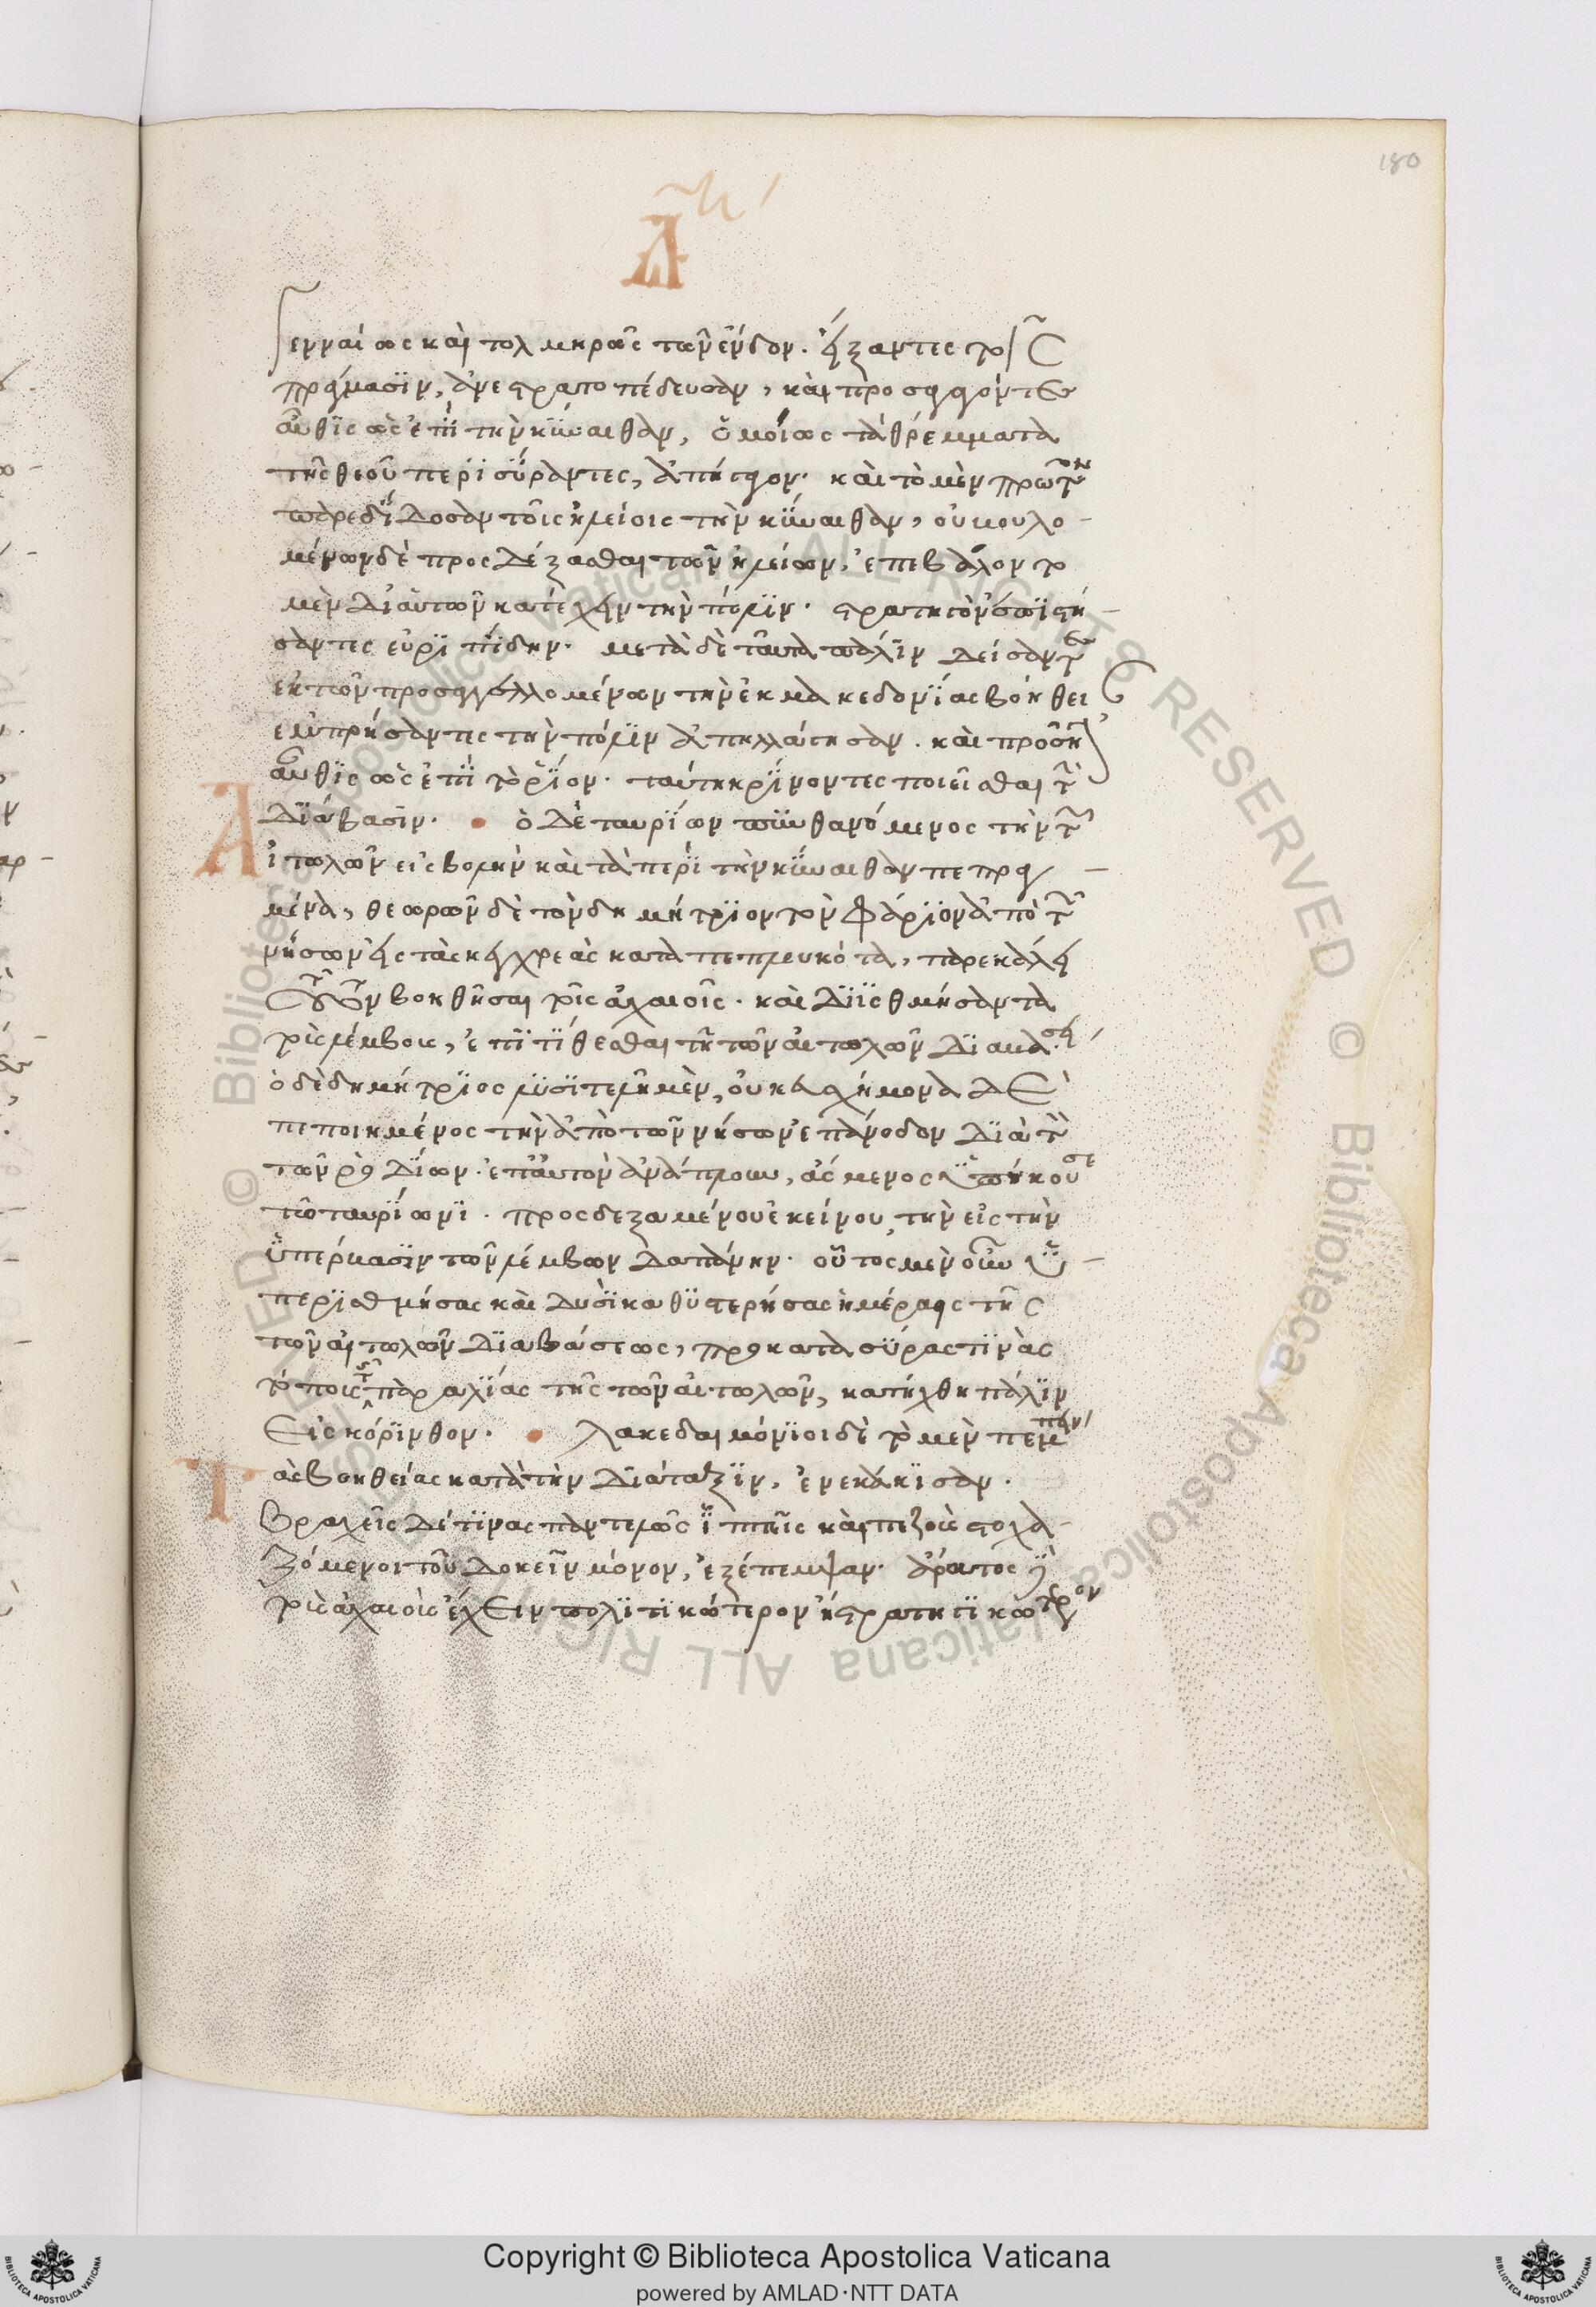 180
Δη
γενναίως καὶ τολμηρῶς τῶν ἔνδον. εἴξαντες τοῖς
πράγμασϊν, ἀνεστρατοπέδευσαν, καὶ προσάγοντες
αὖθϊς ὡς ἐπὶ τὴν κύναιθαν, ὁμοίως τὰ θρέμματα
τῆς θεοῦ περϊσύραντες, ἀπήγαγον. καὶ τὸ μὲν πρῶτον
παρεδίδοσαν τοῖς ἠλείοις τὴν κύναιθαν, οὐ βουλο
μένων δὲ προσδέξασθαι τῶν ἠλείων, ἐπεβάλοντο
μὲν δι' αὑτῶν κατέχειν τὴν πόλϊν. στρατηγὸν ἐπϊστή
σαντες εὐρϊπίδην. μετὰ δὲ ταῦτα πάλϊν δείσαντες
ἐκ τῶν προσαγγελλομένων τὴν ἐκ μακεδονΐας βοήθει
ἐμπρήσαντες τὴν πόλϊν ἀπηλλάγησαν. καὶ προσῆγον
αὖθϊς ὡς ἐπὶ τὸ ῥΐον. ταύτῃ κρΐνοντες ποιεῖσθαι τὴν
δϊάβασϊν. ὁ δὲ ταυρΐων πυνθανόμενος τὴν τῶν
Αἰτωλῶν εἰσβολὴν καὶ τὰ περὶ τὴν κύναιθαν πεπραγ
μένα, θεωρῶν δὲ τὸν δημήτρϊον τὸν φάρϊον ἀπὸ τῶν
νήσων εἰς τὰς κεγχρεὰς καταπεπλευκότα, παρεκάλει
τοῦτον βοηθῆσαι τοῖς ἀχαιοῖς. καὶ δϊϊσθμήσαντα
τοὺς λέμβους, ἐπϊτΐθεσθαι τῇ τῶν αἰτωλῶν δϊαβάσει
ὁ δὲ δημήτρϊος λϋσϊτελῆ μὲν, οὐκ εὐσχήμονα δὲ
πεποιημένος τὴν ἀπὸ τῶν νήσων ἐπάνοδον διὰ τὸν
τῶν ῥοδΐων ἐπ' αὐτὸν ἀνάπλουν, ἄσμενος ὑπήκουσε
τῷ ταυρΐωνϊ. προσδεξαμένου ἐκείνου τὴν εἰς τὴν
ὑπέρβασϊν τῶν λέμβων δαπάνην. οὗτος μὲν οὖν ὑ
περϊσθμήσας καὶ δυσὶ καθϋστερήσας ἡμέραις τῆς
τῶν αἰτωλῶν δϊαβάσεως, προκατασύρας τϊνὰς
τόπους τῆς παραλΐας τῆς τῶν αἰτωλῶν, κατήχθη πάλϊν
εἰς κόρϊνθον. λακεδαιμόνϊοι δὲ τὸ μὲν πέμπειν
Τὰς βοηθείας κατὰ τὴν δϊάταξϊν, ἐνεκάκϊσαν.
βραχεῖς δέ τϊνας παντελῶς ἱππεῖς καὶ πεζοὺς στοχα
ζόμενοι τοῦ δοκεῖν μόνον, ἐξέπεμψαν. ἄρατος δὲ
τοὺς ἀχαιοὺς ἔχειν πολϊτϊκώτερον ἢ στρατηγϊκώτερον
Copyright © Biblioteca Apostolica Vaticana
powered by AMLAD·NTT DATA